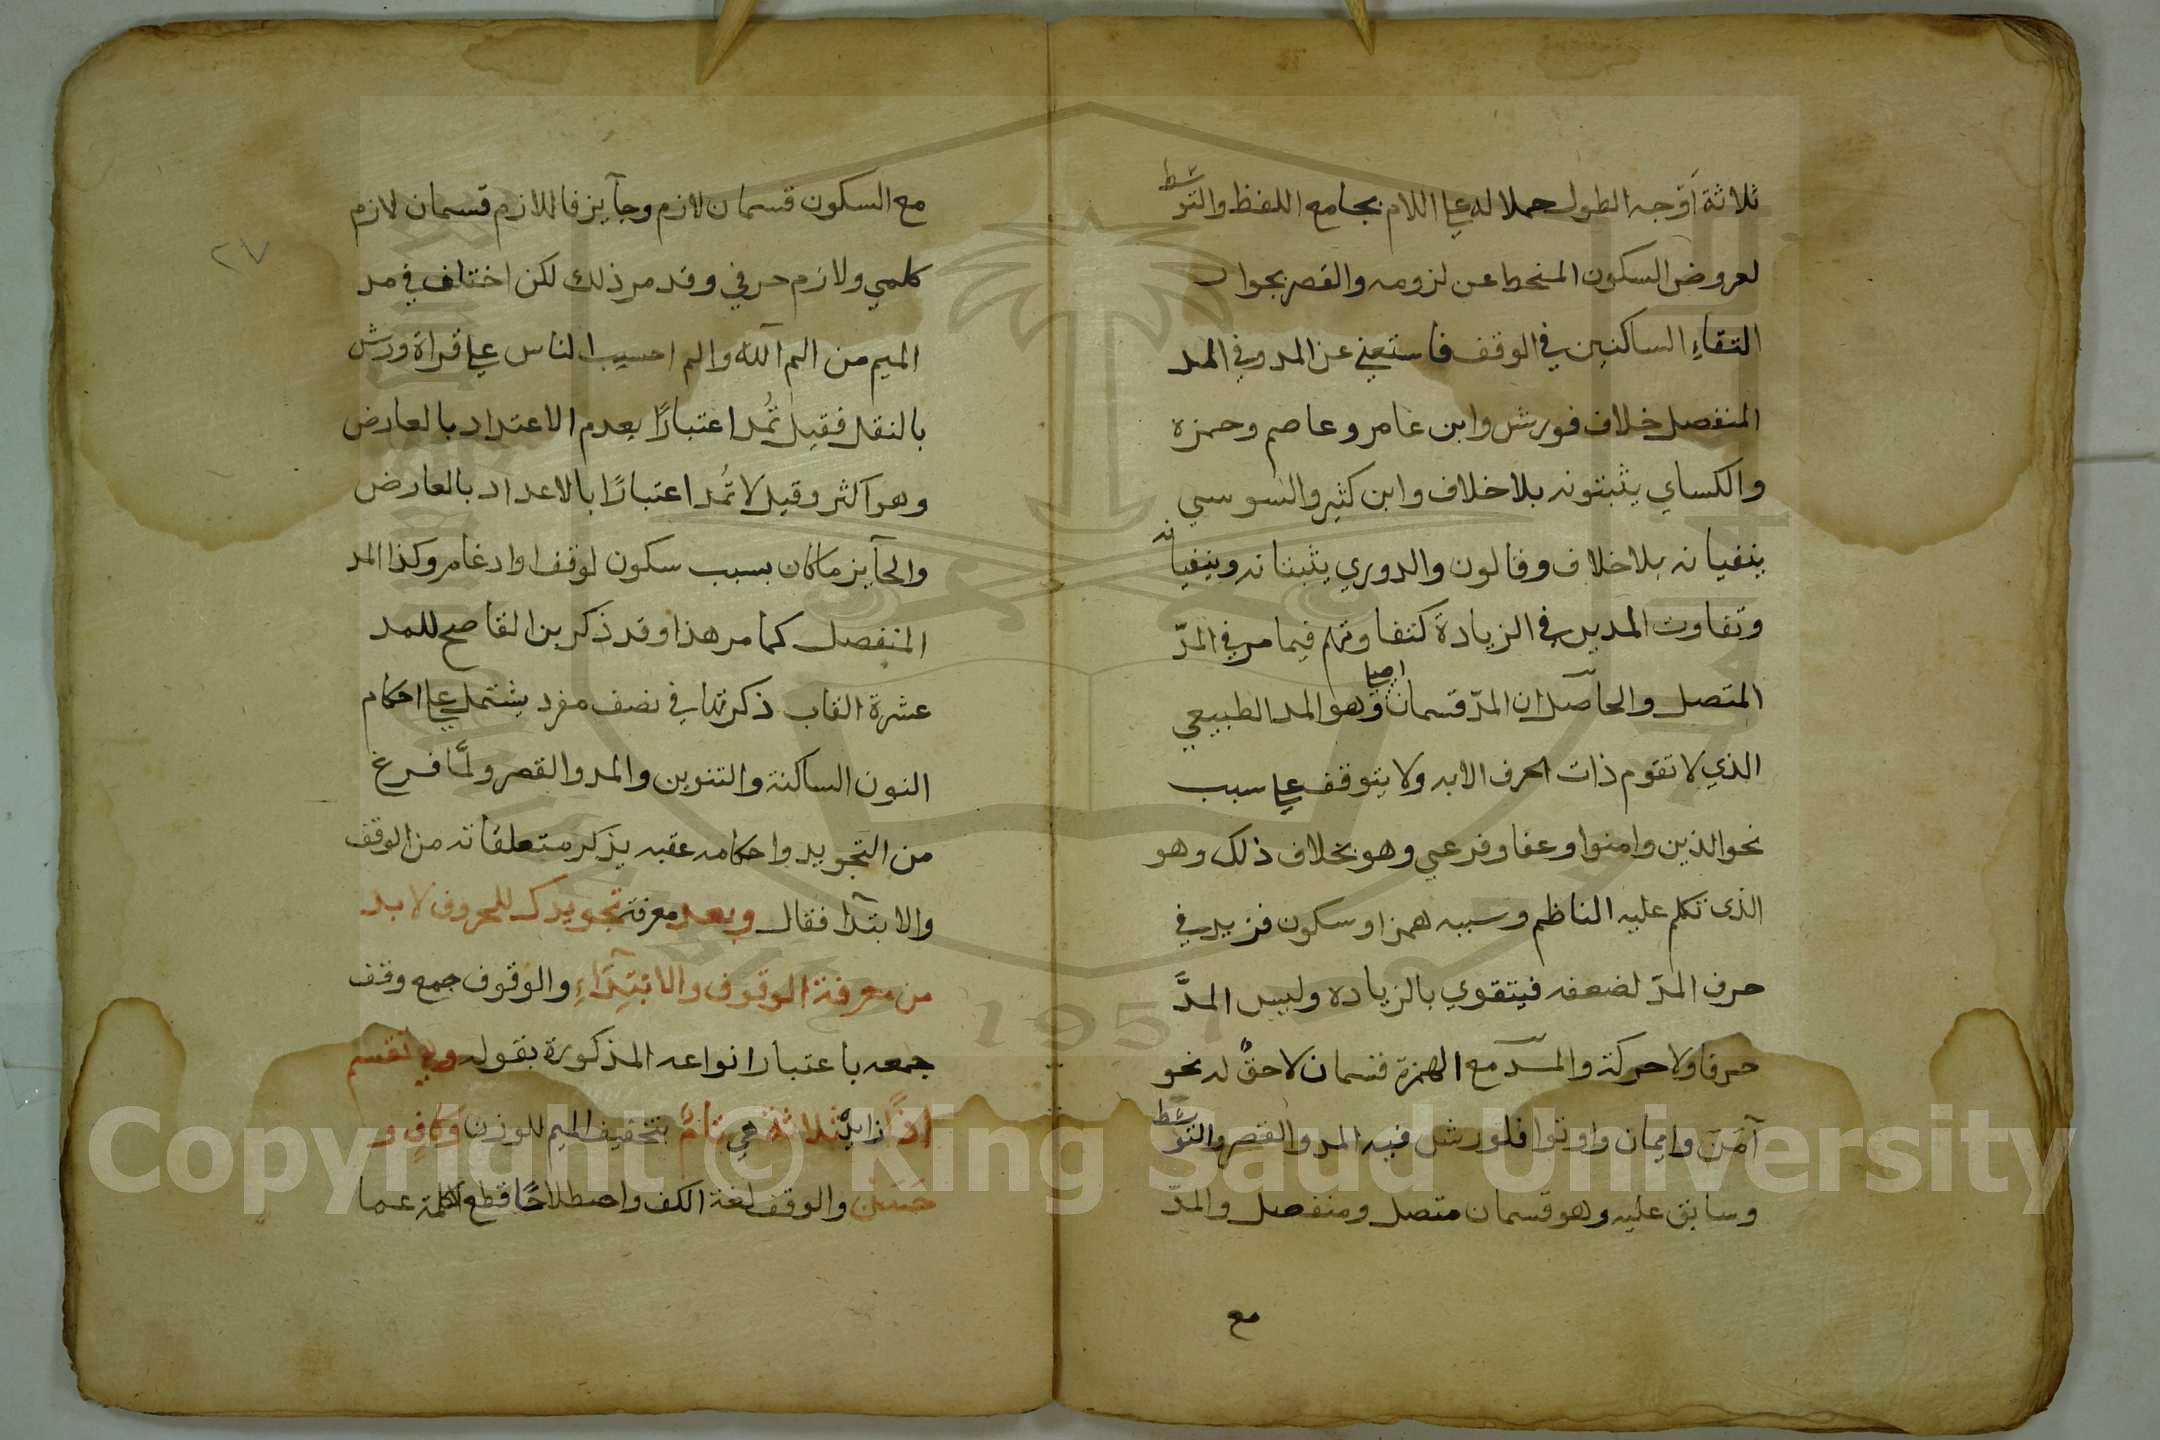 ثلاثة أوجه الطول حملا له علي اللازم بجامع اللفظ والتوسط
لعروض السكون المنحط عن لزومه والقصر بجواز
التقاءِ الساكنين في الوقف فاستغني عن المد وفي المد
المنفصل خلاف فورش وابن عامر وعاصم وحمزة
والكساي يثبتونه بلا خلاف وابن كثير والسوسي
ينفيانه بلا خلاف وقالون والدوري يثبتانه وينفيانه
وتفاوت المدين في الزيادة كتفاوتهم فيما مر في المدّ
المتصل والحاصل ان المدّ قسمان اصلي وهو المد الطبيعي
الذي لا تقوم ذات الحرف الا به ولا يتوقف علي سبب
نحو الذين وامنوا وعفا وفرعي وهو بخلاف ذلك وهو
الذي تكلم عليه الناظم وسببه همز او سكون فزيد في
حرف المدّ لضعفه فيتقوي بالزياده وليس المدَّ
حرفا ولا حركة والمد مع الهمزة قسمان لاحق له نحو
آمَنَ وايمان واوتوا فلورش فيه المد والقصر والتوسط
وسابق عليه وهو قسمان متصل ومنفصل والمدّ
مع
٢٧
مع السكون قسمان لازم وجآيز فاللازم قسمان لازم
كلمي ولازم حرفي وقد مر ذلك لكن اختلف في مد
الميم من الم الله والم احسب الناس علي قراة ورش
بالنقل فقيل تُمد اعتبارًا بعدم الاعتداد بالعارض
وهو اكثر وقيل لا تُمد اعتبارًا بالاعداد بالعارض
والجآيز ما كان بسبب سكون لوقف او ادغام وكذا المد
المنفصل كما مر هذا وقد ذكر بن القاصح للمد
عشرة القاب ذكرتها في نصف مفرد يشتمل علي احكام
النون الساكنة والتنوين والمد والقصر ولمَّا فرغ
من التجويد واحكامه عقبه بذكر متعلقاته من الوقف
والابتدا فقال وبعد معرفة تجويدك للحروف لا بد
من معرفة الوقوف والابْتِدَآءِ والوقوف جمع وقف
جمعه باعتبار انواعه المذكورة بقوله وهي تقسم
اذًا زايد ثلاثة هي تامٌ بتخفيف الميم للوزن وكافٍ و
حَسَنْ والوقف لغة الكف واصطلاحًا قطع الكلمة عما
Copyright © King Saud University
1957